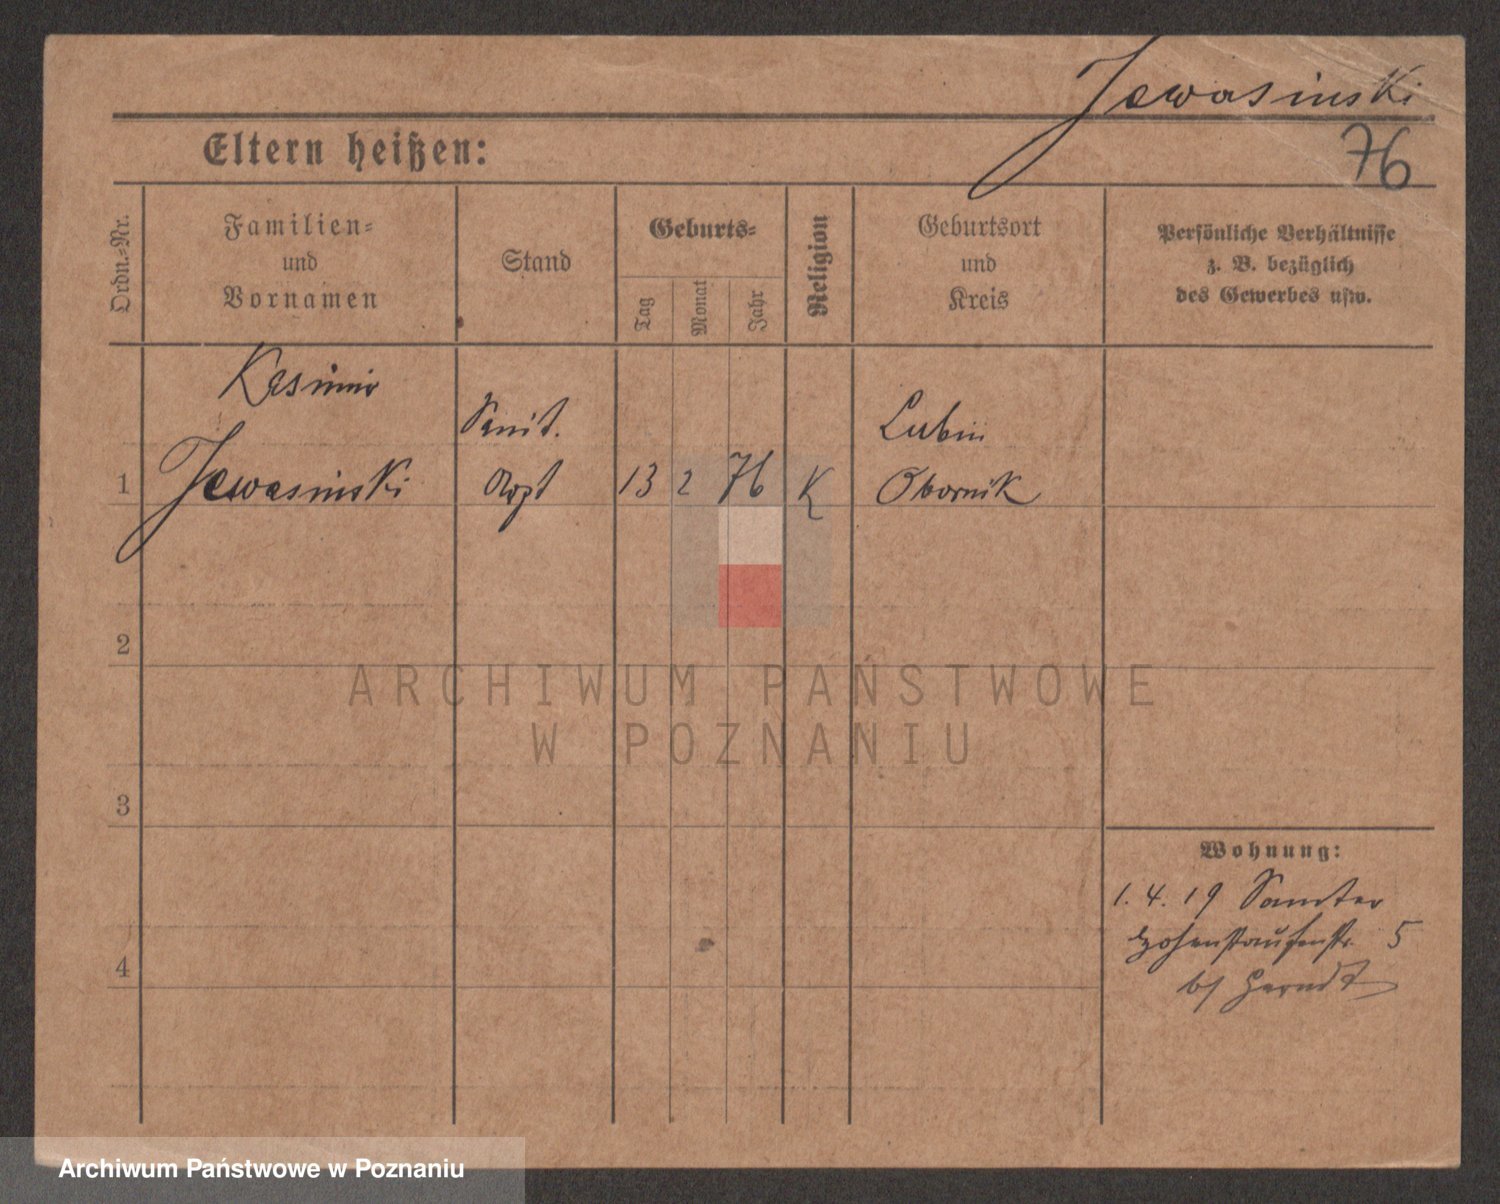 Jewasinski
76
Eltern heißen:
Ordn.-Nr.
Familien-
und
Vornamen
Stand
Geburts-
Tag
Monat
Jahr
Religion
Geburtsort
und
Kreis
Persönliche Verhältnisse
z. B. bezüglich
des Gewerbes usw.
Kasimir
Sanit.
Lubin
1 Jewasinski 13 2 76 K Obornik
2
ARCHIWUM PAŃSTWOWE
W POZNANIU
3
Wohnung:
1. 4. 19 Samter
Hohenstaufenstr. 5
4
Archiwum Państwowe w Poznaniu